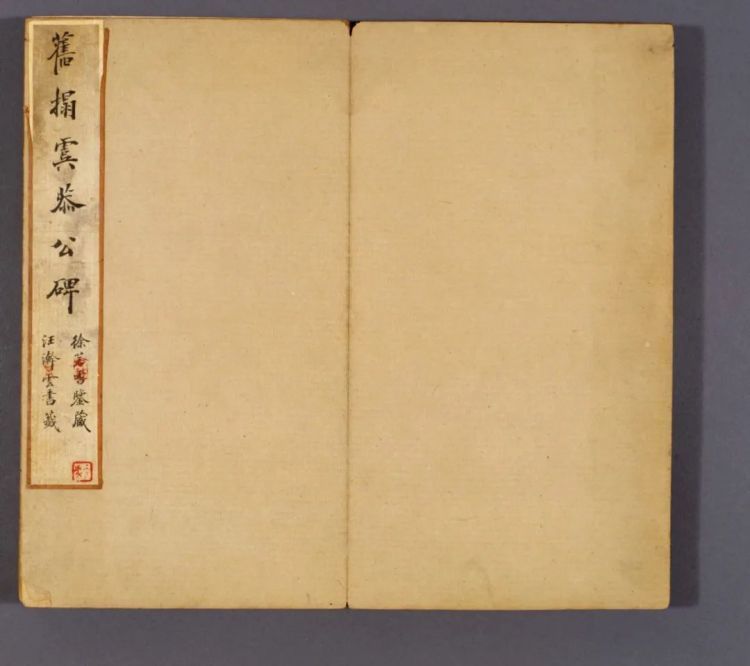 舊搨虞恭公碑
徐若書鑒藏
汪濟雲書籤